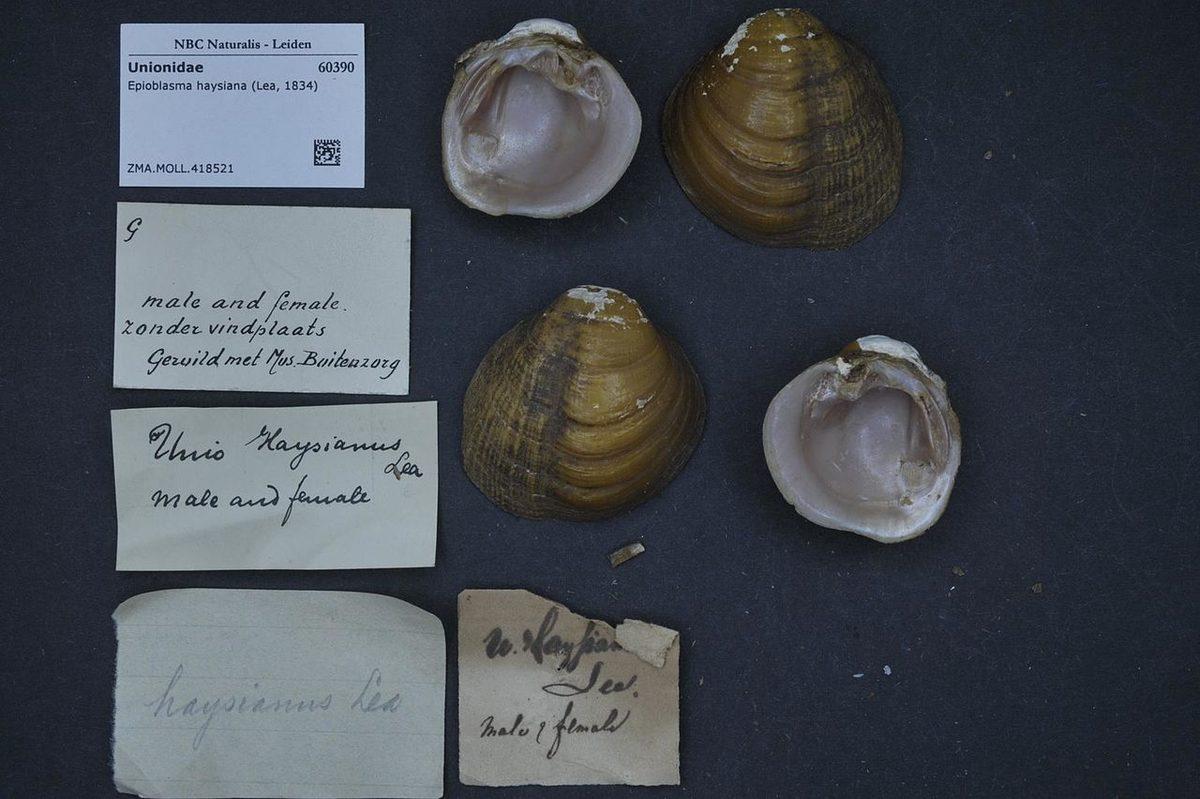 NBC Naturalis - Leiden
Unionidae 60390
Epioblasma haysiana (Lea, 1834)
ZMA.MOLL.418521
G
male and female.
zonder vindplaats
Geruild met Mus. Buitenzorg
Unio Haysianus
Lea
Male and female
haysianus Lea
U. Haysian
Lea.
Male & female